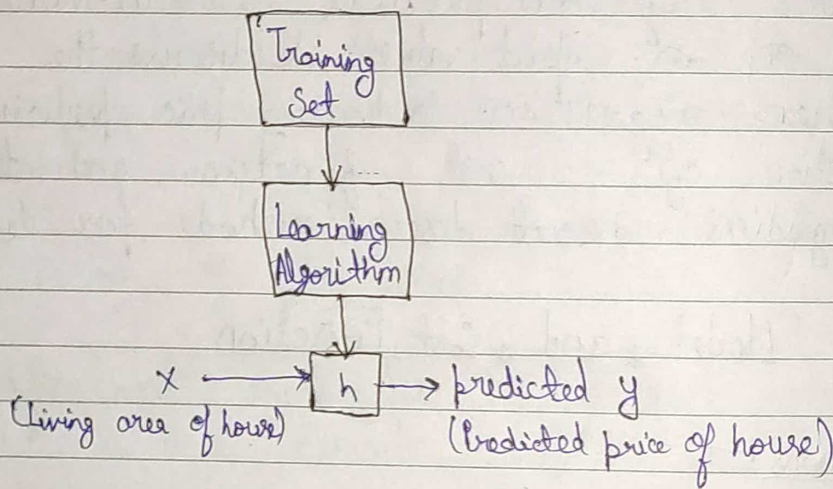 Training
Set
Learning
Algorithm
x
h
predicted y
(Living area of house)
(Predicted price of house)